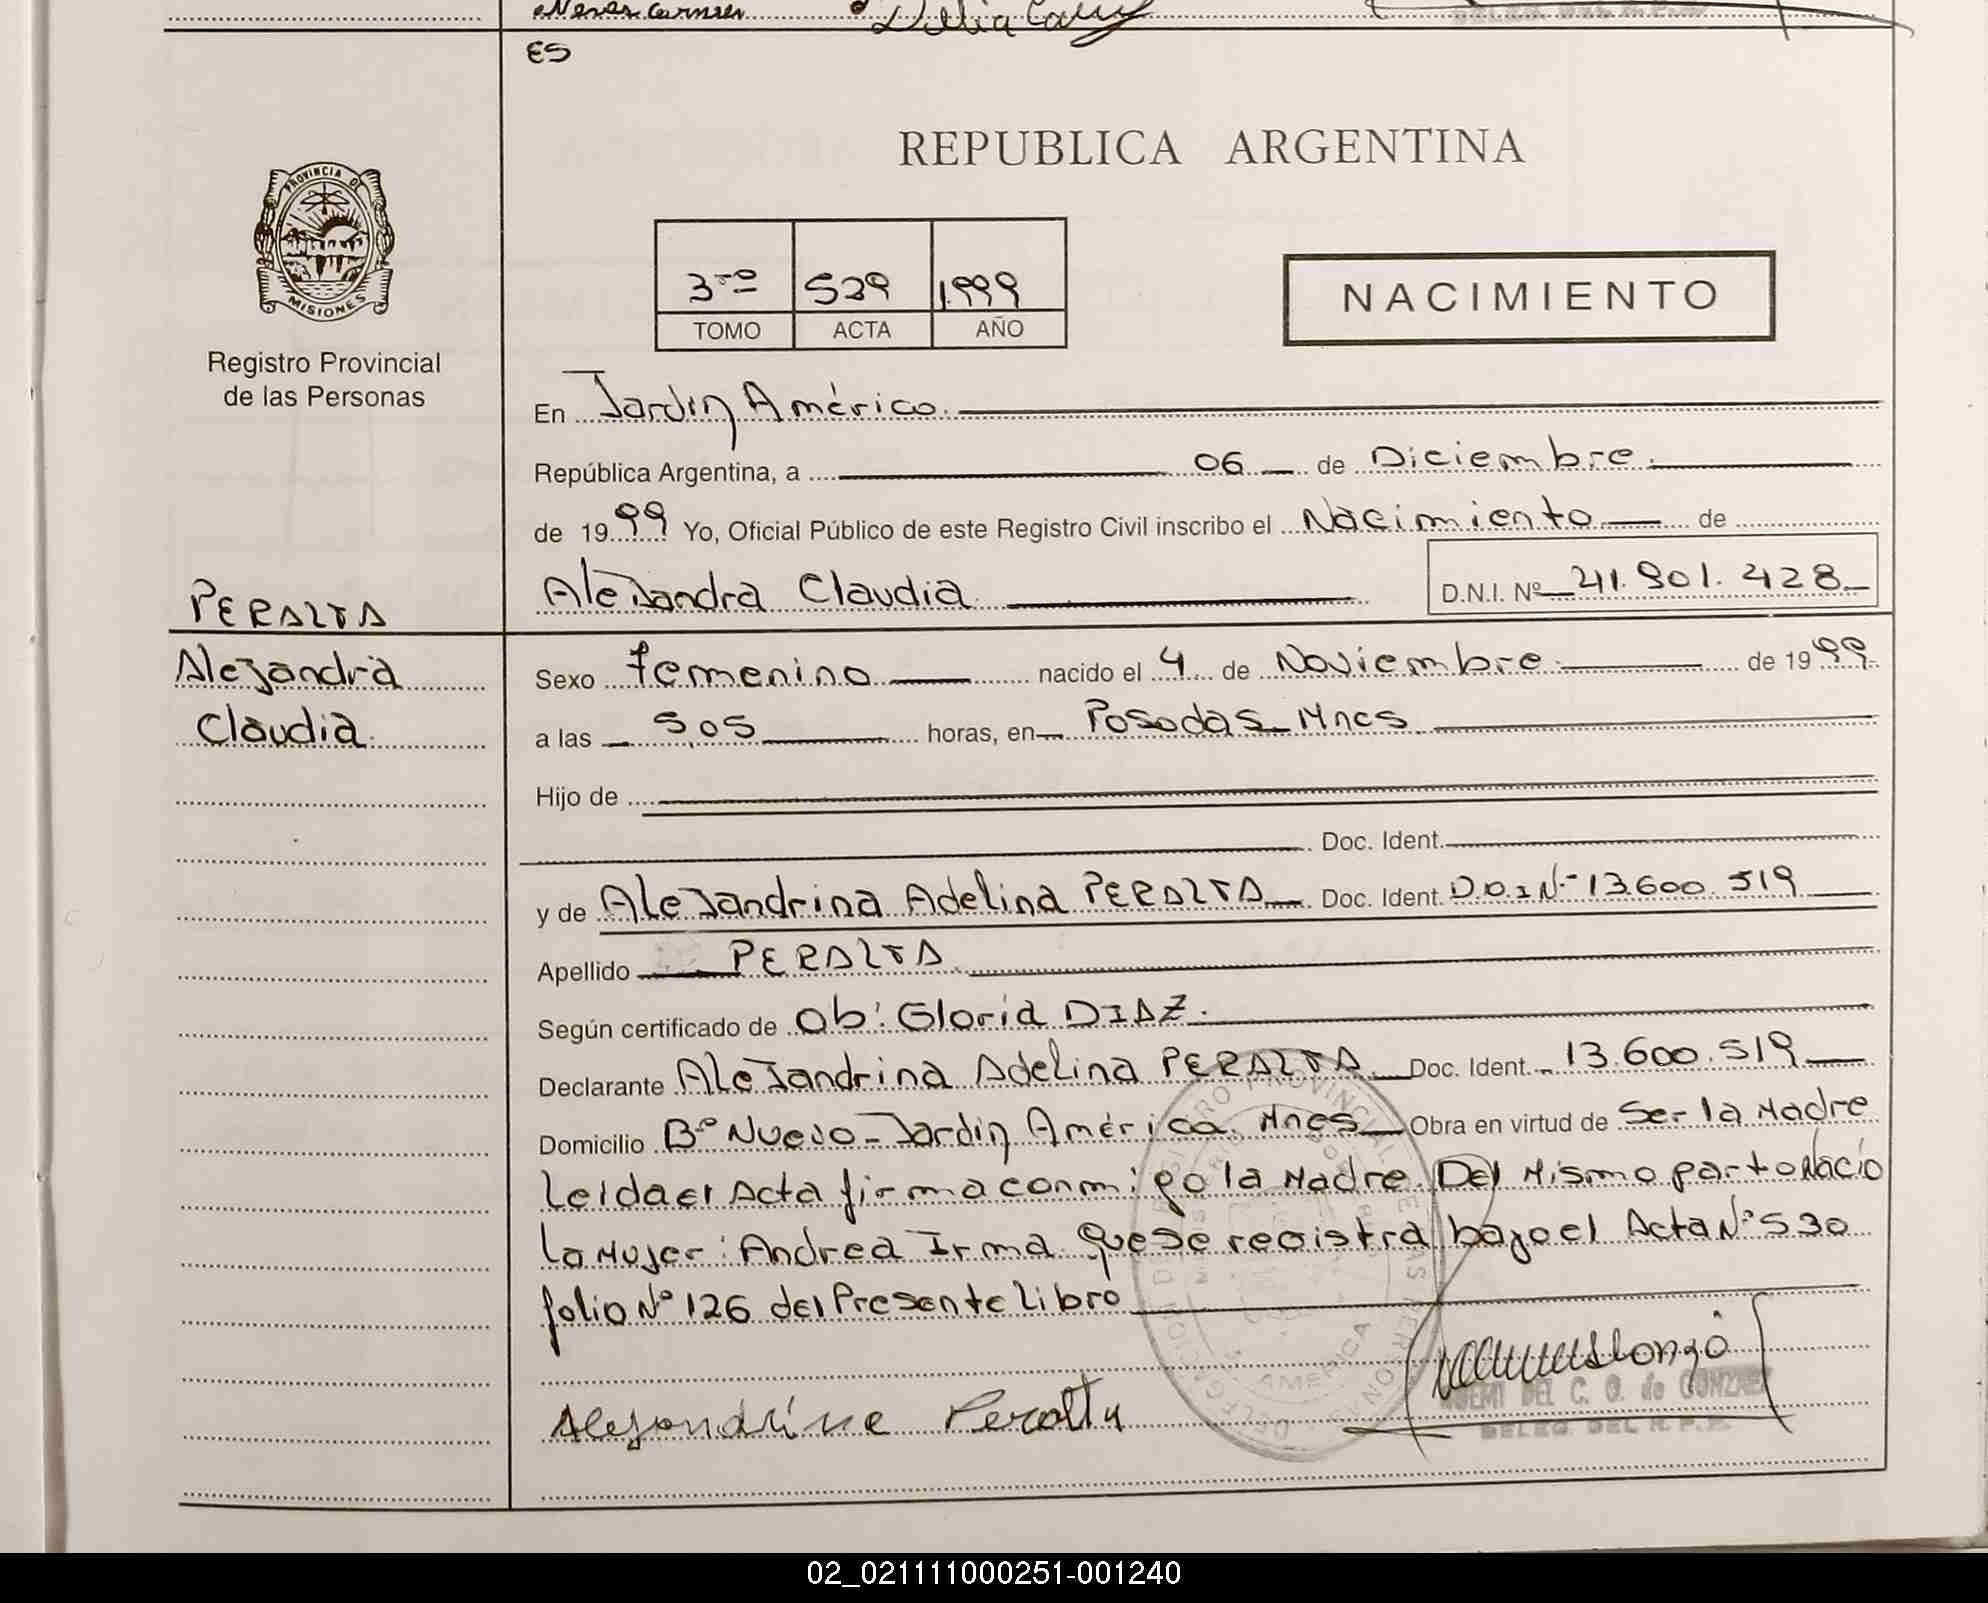 Nieves Carmen Delia
DELEG. DEL R.P.P.
ES
PROVINCIA DE
MISIONES
Registro Provincial
de las Personas
REPUBLICA ARGENTINA
3ro 529 1999
TOMO ACTA AÑO
NACIMIENTO
En Jardin América
República Argentina, a 06 de Diciembre
de 1999 Yo, Oficial Público de este Registro Civil inscribo el Nacimiento de
Alejandra Claudia D.N.I. Nº 41.901.428
PERALTA
Alejandra
Claudia
Sexo femenino nacido el 4 de Noviembre de 1999
a las 505 horas, en Posadas Mnes
Hijo de
Doc. Ident.
y de Alejandrina Adelina PERALTA Doc. Ident. D.N.I Nº 13.600.519
Apellido PERALTA
Según certificado de Ob: Gloria DIAZ.
Declarante Alejandrina Adelina PERALTA Doc. Ident. 13.600.519
Domicilio Bº Nuevo - Jardin América. Mnes Obra en virtud de Ser la Madre
Leida el Acta firma conmigo la Madre. Del Mismo parto Nacio
la Mujer: Andrea Irma Que se registra bajo el Acta Nº 530
folio Nº 126 del Presente libro
Alejandrina Peralta
NOEMI DEL C. O. de GONZALEZ
DELEG. DEL R.P.P.
02_021111000251-001240